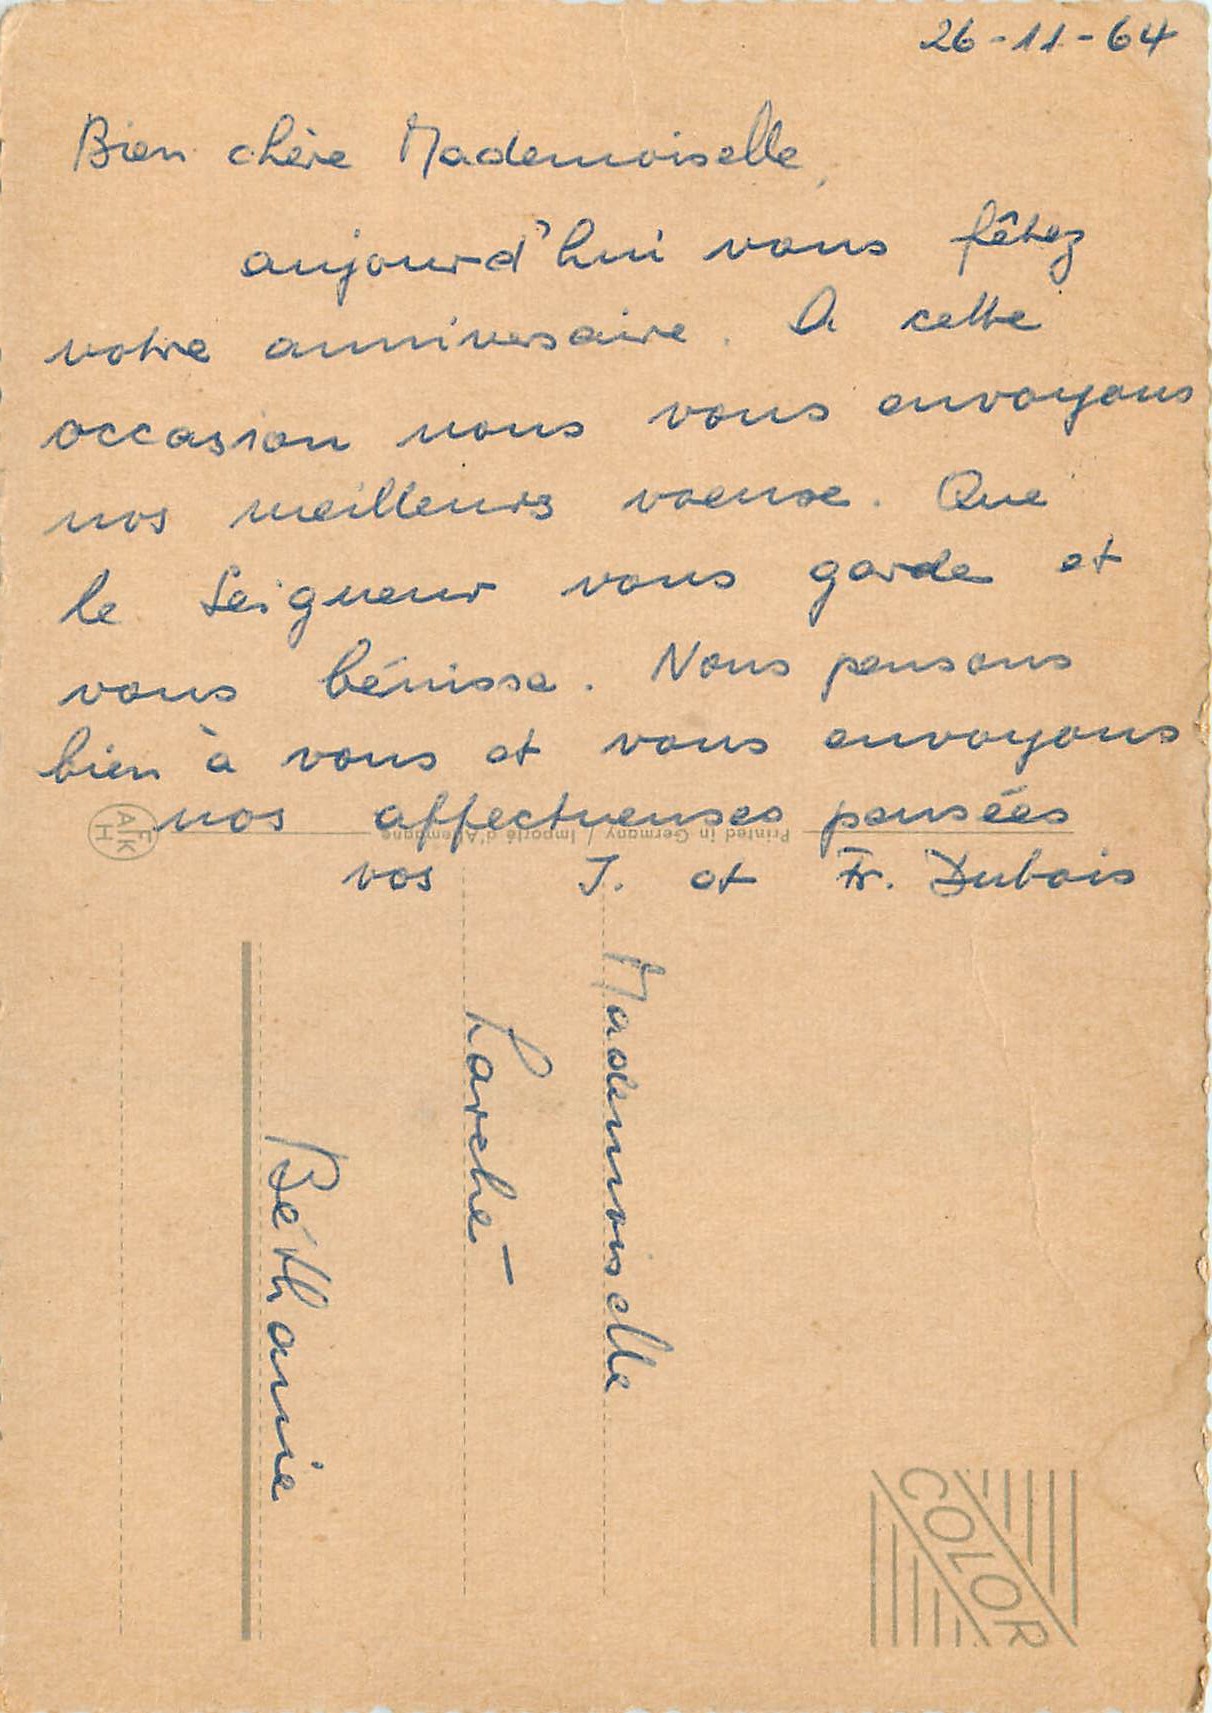 26-11-64
Bien chère Mademoiselle,
aujourd'hui vous fêtez
votre anniversaire. A cette
occasion nous vous envoyons
nos meilleurs voeux. Que
le Seigneur vous garde et
vous bénisse. Nous pensons
bien à vous et vous envoyons
nos affectueuses pensées
vos J. et Fr. Dubois
Printed in Germany / Importé d'Allemagne
AFKH
Mademoiselle
Larché -
Béthanie
COLOR